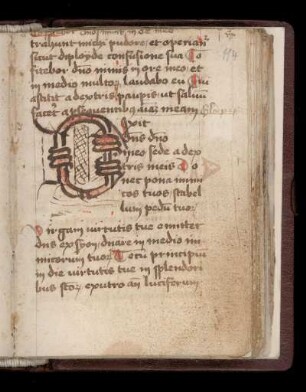 trahunt michi pudore et operian̄
sicut deployde confusione sua Co
fitebor dno nimis in ore meo et
in medio multoꝝ laudabo eū Qui
astitit a dextris paupis ut saluā
facet a psequentibꝫ aīaꝫ meam
Dixit
dn̄s dno
meo sede a dex
tris meis Do
nec pona inimi
cos tuos scabel
lum pedū tuoꝝ
Virgam virtutis tue emittet
dn̄s ex syon dnare in medio ini
micorum tuoꝝ Tecū principiū
in die virtutis tue in splendori
bus sc̄oꝝ ex utro an̄ luciferum
114